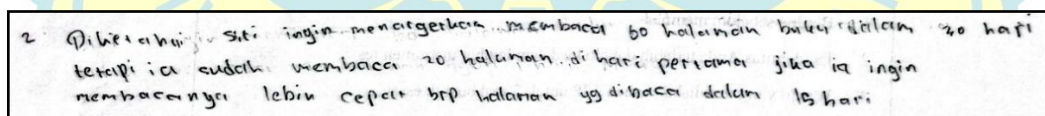 2 Diketahui siti ingin menargetkan membaca 60 halaman buku dalam 20 hari
tetapi ia sudah membaca 20 halaman di hari pertama jika ia ingin
membacanya lebih cepat brp halaman yg dibaca dalam 15 hari